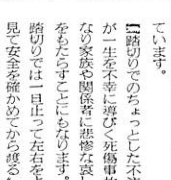 ています。
【踏切りでのちょっとした不注
が一生を不幸に導びく死傷事故
なり家族や関係者に悲惨な哀し
をもたらすことにもなります。
踏切りでは一旦止って左右をよ
見て安全を確かめてから渡る